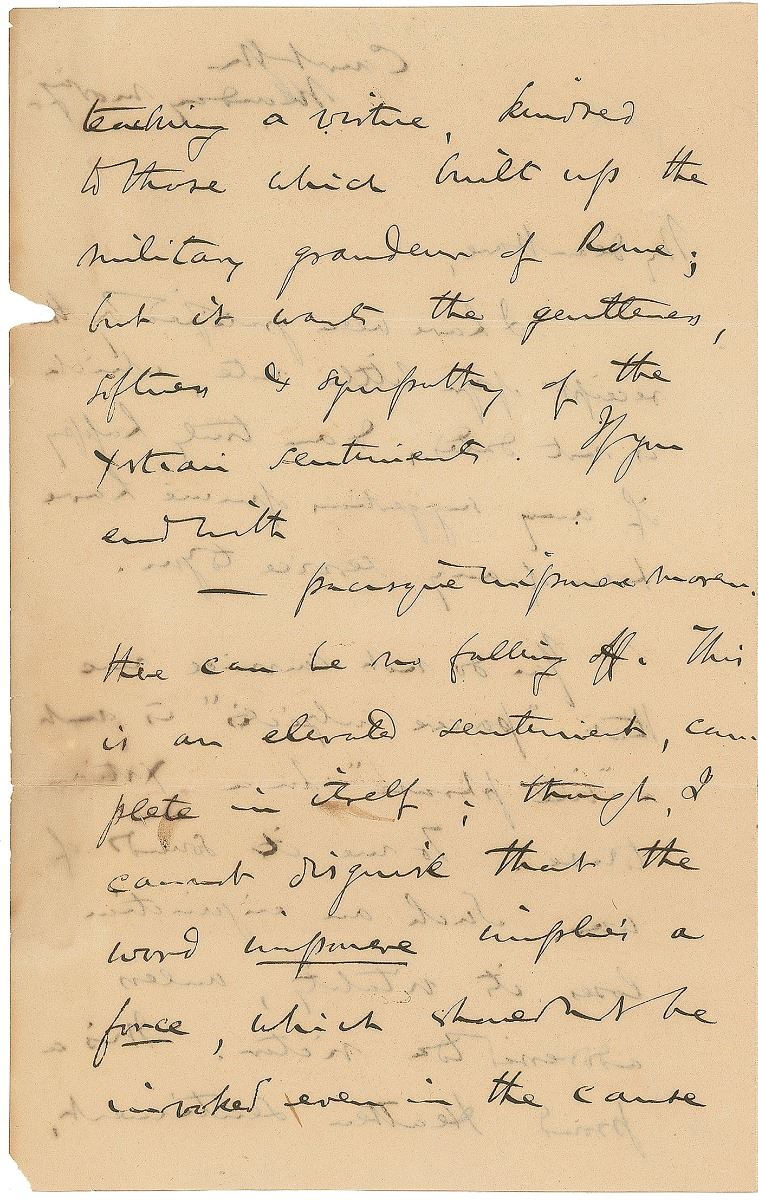 teaching a virtue, kindred
to those which built up the
military grandeur of Rome;
but it wants the gentleness,
softness & sympathy of the
Xstian sentiments. If you
end with
— pacisque imponere morem.
there can be no falling off. This
is an elevated sentiment, com
plete in itself; though, I
cannot disguise that the
word imponere implies a
force, which should not be
invoked even in the cause